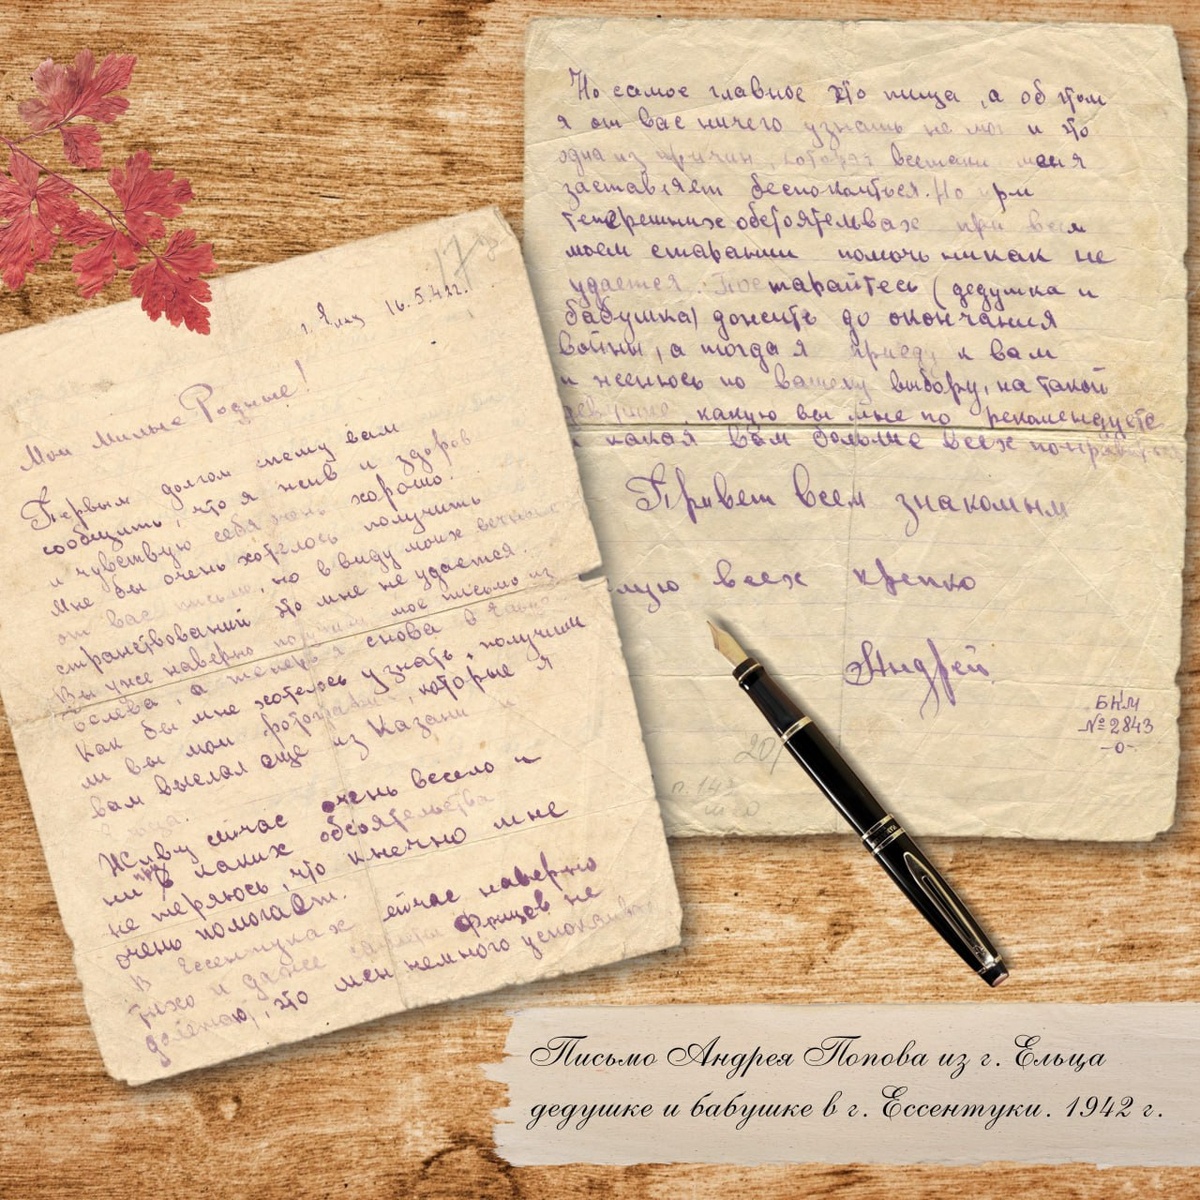 г. Елец 16.5.42г.
Мои милые Родные!
Первым долгом спешу вам
сообщить, что я жив и здоров
и чувствую себя очень хорошо.
Мне бы очень хотелось получить
от вас письмо, но в виду моих вечных
странствований это мне не удается.
Вы уже наверно получили мое письмо из
а теперь я снова в
Как бы мне хотелось узнать, получили
ли вы мои фотографии, которые я
вам выслал еще из Казани и
Живу сейчас очень весело и
ни при каких обстоятельства
не теряюсь, что кнечно мне
очень помогает.
В Ессентуках сейчас наверно
тихо и даже не
долетают, это мен немного успокаивает
Но самое главное это пища, а об этом
я от вас ничего узнать не мог и это
одна из причин, которая меня
заставляет беспокоиться. Но при
теперешних обстоятельвах при всем
моем старании помочь никак не
удается. Постарайтесь (дедушка и
бабушка) дожить до окончания
войны, а тогда я приеду к вам
и женюсь по вашему выбору, на такой
девушке, какую вы мне по рекомендуете
и какая вам больше всех понравится
Привет всем знакомым
лую всех крепко
Андрей
БКМ
№2843
-0-
20/
17
Письмо Андрея Попова из г. Ельца
дедушке и бабушке в г. Ессентуки. 1942 г.